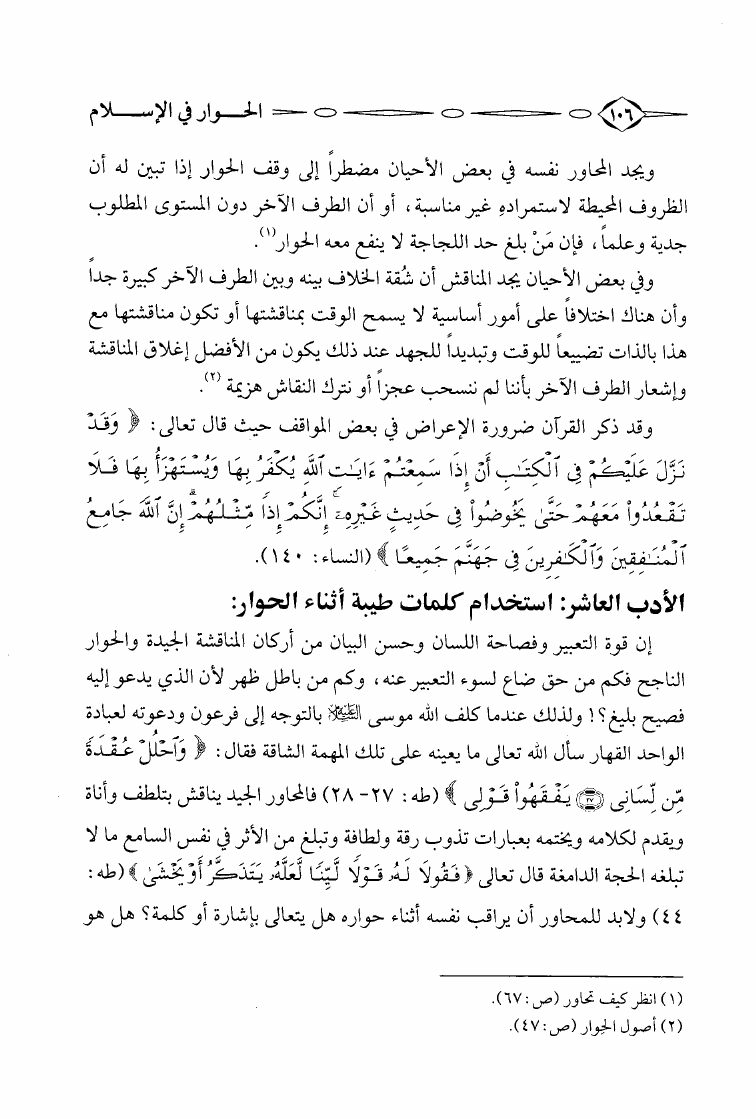 ١٠٦ الحـــوار في الإســـلام
ويجد المحاور نفسه في بعض الأحيان مضطراً إلى وقف الحوار إذا تبين له أن
الظروف المحيطة لاستمراره غير مناسبة، أو أن الطرف الآخر دون المستوى المطلوب
جدية وعلماً، فإن مَنْ بلغ حد اللجاجة لا ينفع معه الحوار(١).
وفي بعض الأحيان يجد المناقش أن شُقة الخلاف بينه وبين الطرف الآخر كبيرة جداً
وأن هناك اختلافاً على أمور أساسية لا يسمح الوقت بمناقشتها أو تكون مناقشتها مع
هذا بالذات تضييعاً للوقت وتبديداً للجهد عند ذلك يكون من الأفضل إغلاق المناقشة
وإشعار الطرف الآخر بأننا لم ننسحب عجزاً أو نترك النقاش هزيمة(٢).
وقد ذكر القرآن ضرورة الإعراض في بعض المواقف حيث قال تعالى: ﴿ وَقَدْ
نَزَّلَ عَلَيْكُمْ فِى ٱلْكِتَٰبِ أَنْ إِذَا سَمِعْتُمْ ءَايَٰتِ ٱللَّهِ يُكْفَرُ بِهَا وَيُسْتَهْزَأُ بِهَا فَلَا
تَقْعُدُوا۟ مَعَهُمْ حَتَّىٰ يَخُوضُوا۟ فِى حَدِيثٍ غَيْرِهِۦٓ ۚ إِنَّكُمْ إِذًا مِّثْلُهُمْ ۗ إِنَّ ٱللَّهَ جَامِعُ
ٱلْمُنَٰفِقِينَ وَٱلْكَٰفِرِينَ فِى جَهَنَّمَ جَمِيعًا ﴾ (النساء: ١٤٠).
الأدب العاشر: استخدام كلمات طيبة أثناء الحوار:
إن قوة التعبير وفصاحة اللسان وحسن البيان من أركان المناقشة الجيدة والحوار
الناجح فكم من حق ضاع لسوء التعبير عنه، وكم من باطل ظهر لأن الذي يدعو إليه
فصيح بليغ؟! ولذلك عندما كلف الله موسى عليه السلام بالتوجه إلى فرعون ودعوته لعبادة
الواحد القهار سأل الله تعالى ما يعينه على تلك المهمة الشاقة فقال: ﴿ وَٱحْلُلْ عُقْدَةً
مِّن لِّسَانِى ۝٢٧ يَفْقَهُوا۟ قَوْلِى ﴾ (طه: ٢٧- ٢٨) فالمحاور الجيد يناقش بتلطف وأناة
ويقدم لكلامه ويختمه بعبارات تذوب رقة ولطافة وتبلغ من الأثر في نفس السامع ما لا
تبلغه الحجة الدامغة قال تعالى ﴿ فَقُولَا لَهُۥ قَوْلًا لَّيِّنًا لَّعَلَّهُۥ يَتَذَكَّرُ أَوْ يَخْشَىٰ ﴾ (طه:
٤٤) ولابد للمحاور أن يراقب نفسه أثناء حواره هل يتعالى بإشارة أو كلمة؟ هل هو
(١) انظر كيف تحاور (ص:٦٧).
(٢) أصول الحوار (ص:٤٧).